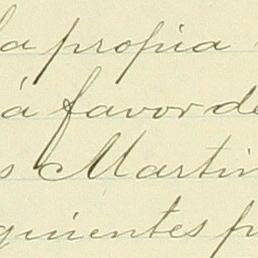 la propia
á favor de
s Martin
quientes p